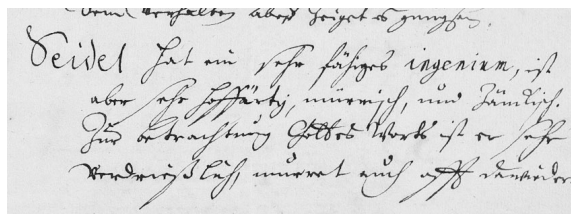 dem verhalten aber zeiget es gungsam.
Seidel hat ein sehr fähiges ingenium, ist
aber sehr hoffärtig, mürrisch, und Zänckisch.
Zur betrachtung Gottes Worts ist er sehr
Verdrießlich, murret auch offt darwieder